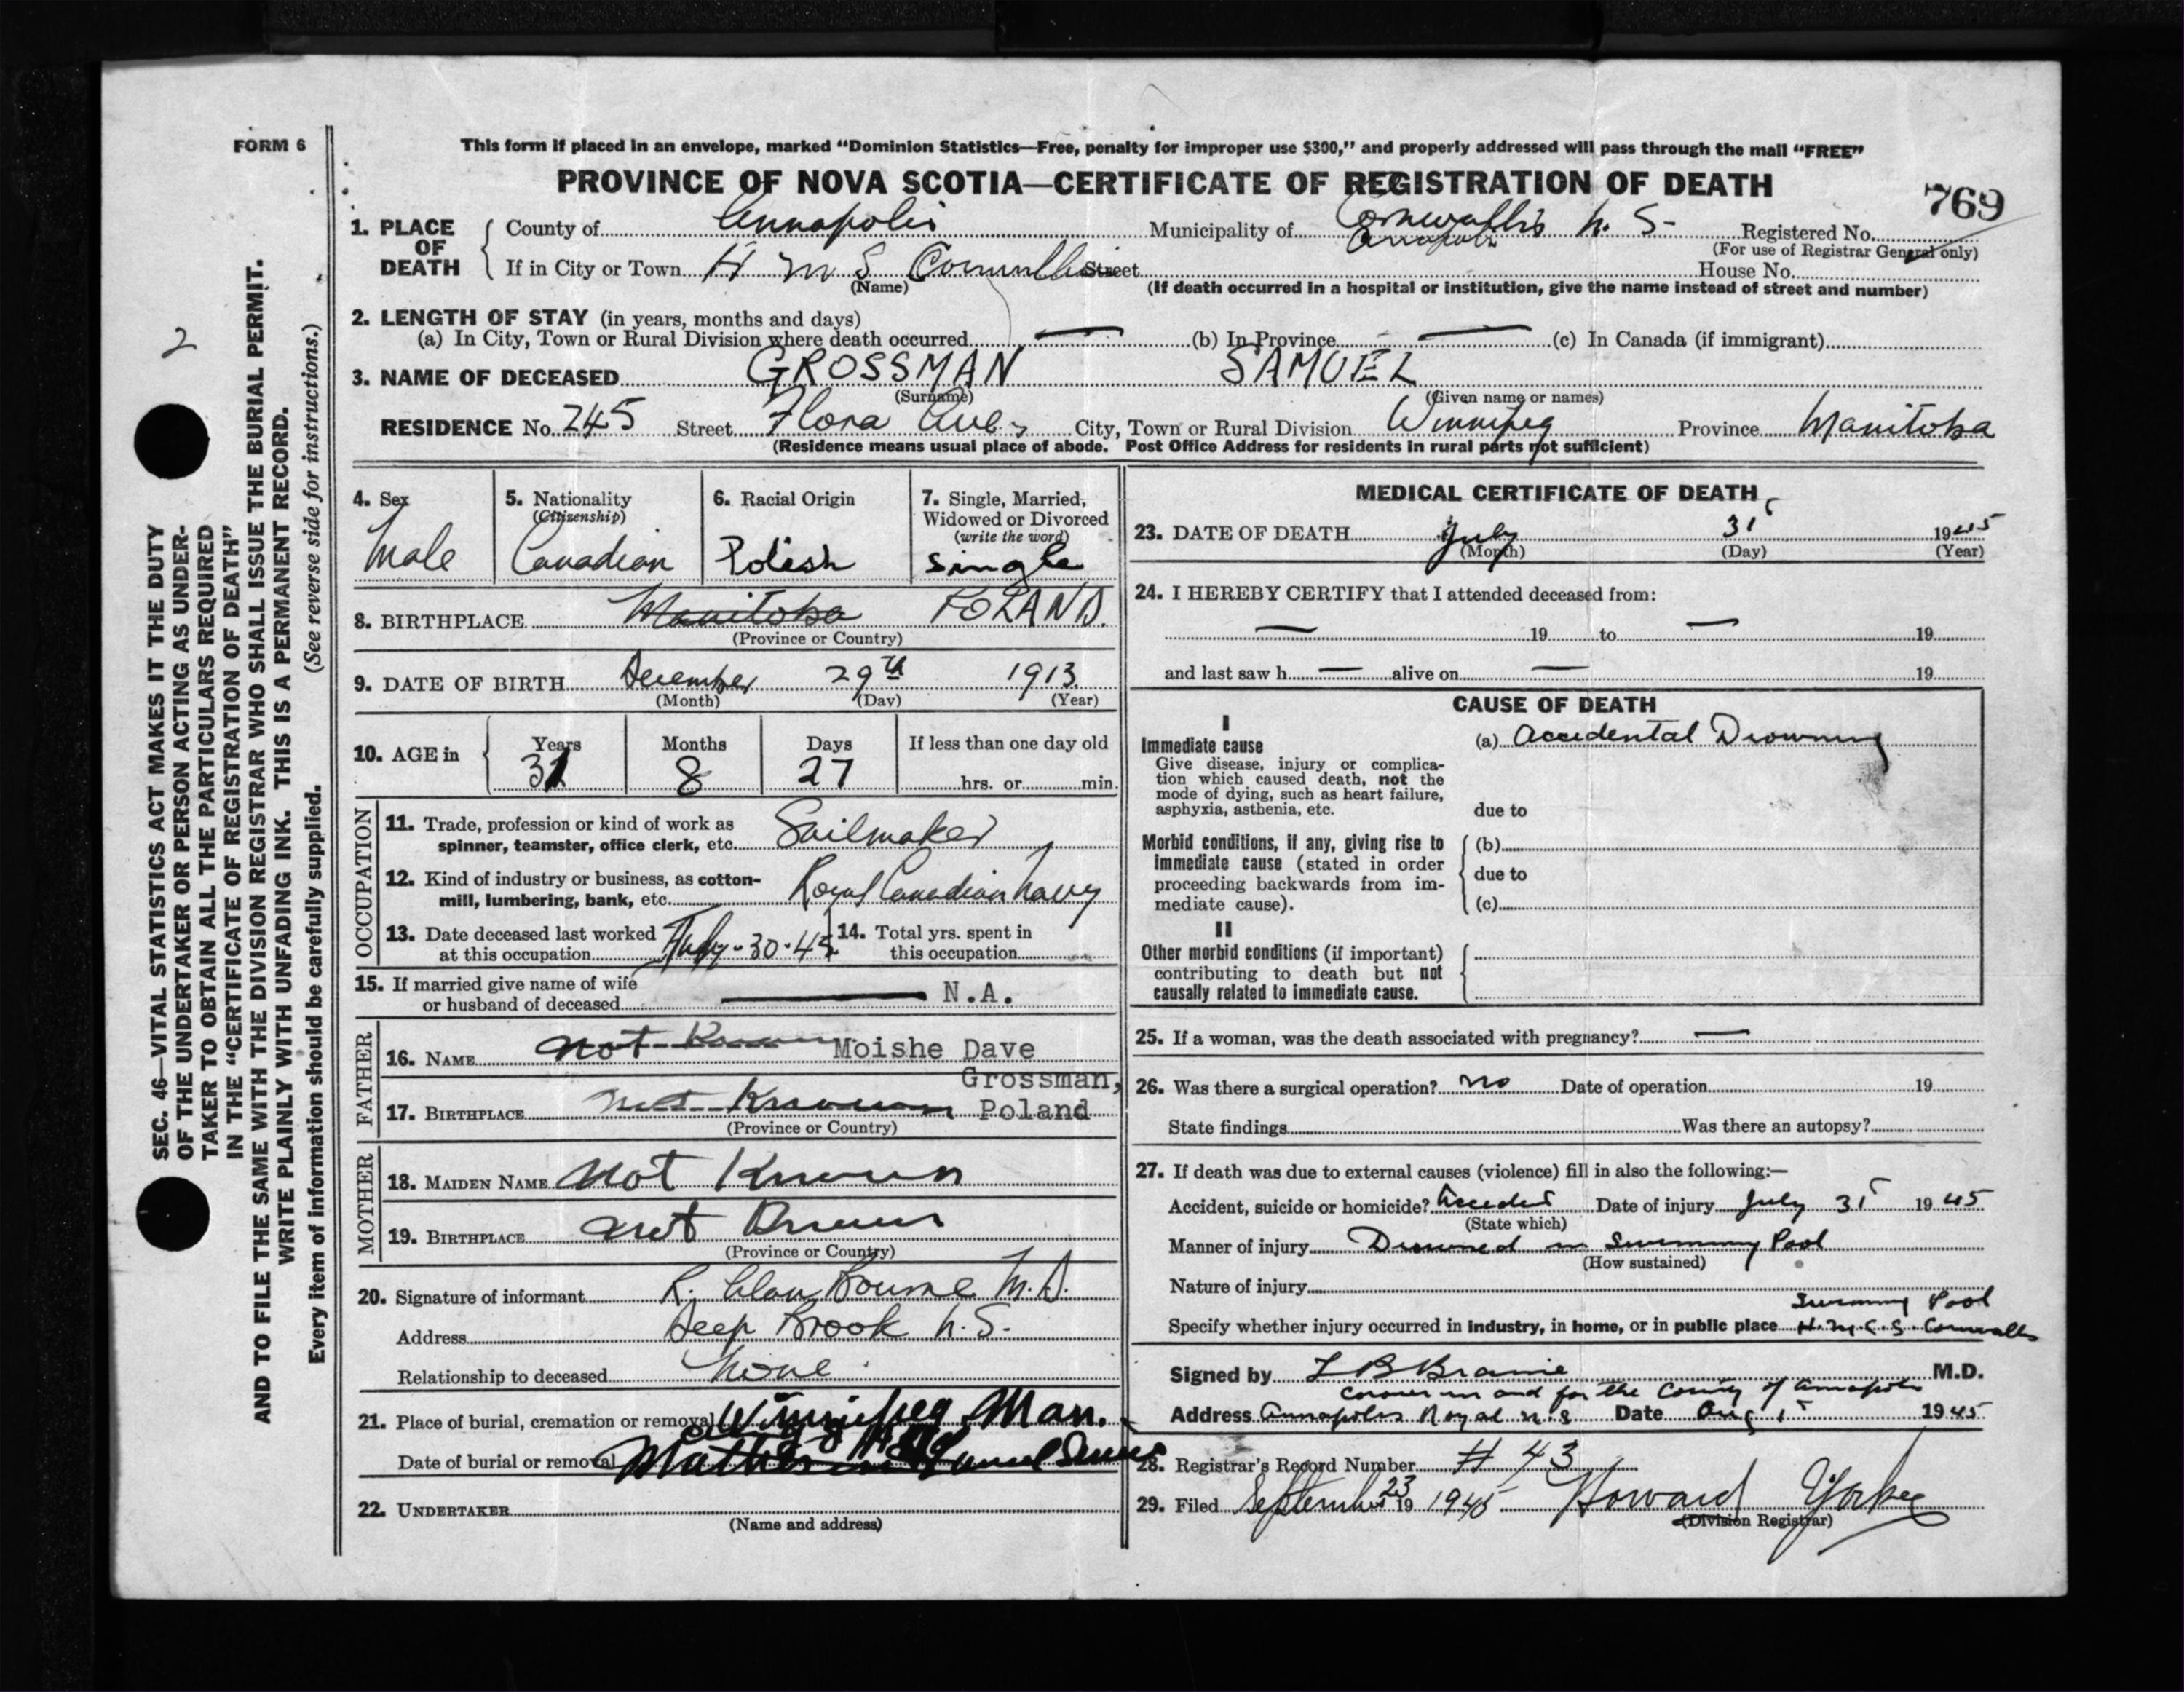 FORM 6
This form if placed in an envelope, marked "Dominion Statistics—Free, penalty for improper use $300," and properly addressed will pass through the mail "FREE"
PROVINCE OF NOVA SCOTIA—CERTIFICATE OF REGISTRATION OF DEATH
769
1. PLACE OF DEATH
County of Annapolis Municipality of Cornwallis N. S. Registered No.
(For use of Registrar General only)
If in City or Town H M S Cornwallis Street House No.
(Name) (If death occurred in a hospital or institution, give the name instead of street and number)
2. LENGTH OF STAY (in years, months and days)
(a) In City, Town or Rural Division where death occurred — (b) In Province — (c) In Canada (if immigrant)
3. NAME OF DECEASED GROSSMAN SAMUEL
(Surname) (Given name or names)
RESIDENCE No. 245 Street Flora Ave., City, Town or Rural Division Winnipeg Province Manitoba
(Residence means usual place of abode. Post Office Address for residents in rural parts not sufficient)
4. Sex
Male
5. Nationality
(Citizenship)
Canadian
6. Racial Origin
Polish
7. Single, Married,
Widowed or Divorced
(write the word)
Single
8. BIRTHPLACE Manitoba POLAND.
(Province or Country)
9. DATE OF BIRTH December 29th 1913
(Month) (Day) (Year)
10. AGE in
Years Months Days If less than one day old
31 8 27 hrs. or min.
OCCUPATION
11. Trade, profession or kind of work as
spinner, teamster, office clerk, etc. Sailmaker
12. Kind of industry or business, as cotton-
mill, lumbering, bank, etc. Royal Canadian Navy
13. Date deceased last worked
at this occupation July-30-45
14. Total yrs. spent in
this occupation
15. If married give name of wife
or husband of deceased — N.A.
FATHER
16. NAME Not Known Moishe Dave
Grossman,
17. BIRTHPLACE Not Known Poland
(Province or Country)
MOTHER
18. MAIDEN NAME Not Known
19. BIRTHPLACE Not Known
(Province or Country)
20. Signature of informant Bourne M.D.
Address Deep Brook N.S.
Relationship to deceased None
21. Place of burial, cremation or removal Winnipeg, Man.
Date of burial or removal
22. UNDERTAKER
(Name and address)
MEDICAL CERTIFICATE OF DEATH
23. DATE OF DEATH July 31 1945
(Month) (Day) (Year)
24. I HEREBY CERTIFY that I attended deceased from:
— 19 to — 19
and last saw h — alive on — 19
CAUSE OF DEATH
I
Immediate cause
Give disease, injury or complica-
tion which caused death, not the
mode of dying, such as heart failure,
asphyxia, asthenia, etc.
(a) Accidental Drowning
due to
Morbid conditions, if any, giving rise to
immediate cause (stated in order
proceeding backwards from im-
mediate cause).
(b)
due to
(c)
II
Other morbid conditions (if important)
contributing to death but not
causally related to immediate cause.
25. If a woman, was the death associated with pregnancy? —
26. Was there a surgical operation? no Date of operation 19
State findings Was there an autopsy?
27. If death was due to external causes (violence) fill in also the following:—
Accident, suicide or homicide? Date of injury July 31 1945
(State which)
Manner of injury Drowned in Swimming Pool
(How sustained)
Nature of injury
Swimming Pool
Specify whether injury occurred in industry, in home, or in public place H.M.C.S. Cornwallis
Signed by L B Braine M.D.
Coroner in and for the County of Annapolis
Address Annapolis Royal N.S Date Aug 1st 1945
28. Registrar's Record Number # 43
29. Filed September 23 19 1945 Howard Yorke
(Division Registrar)
2
SEC. 46—VITAL STATISTICS ACT MAKES IT THE DUTY
OF THE UNDERTAKER OR PERSON ACTING AS UNDER-
TAKER TO OBTAIN ALL THE PARTICULARS REQUIRED
IN THE "CERTIFICATE OF REGISTRATION OF DEATH"
AND TO FILE THE SAME WITH THE DIVISION REGISTRAR WHO SHALL ISSUE THE BURIAL PERMIT.
WRITE PLAINLY WITH UNFADING INK. THIS IS A PERMANENT RECORD.
Every item of information should be carefully supplied. (See reverse side for instructions.)